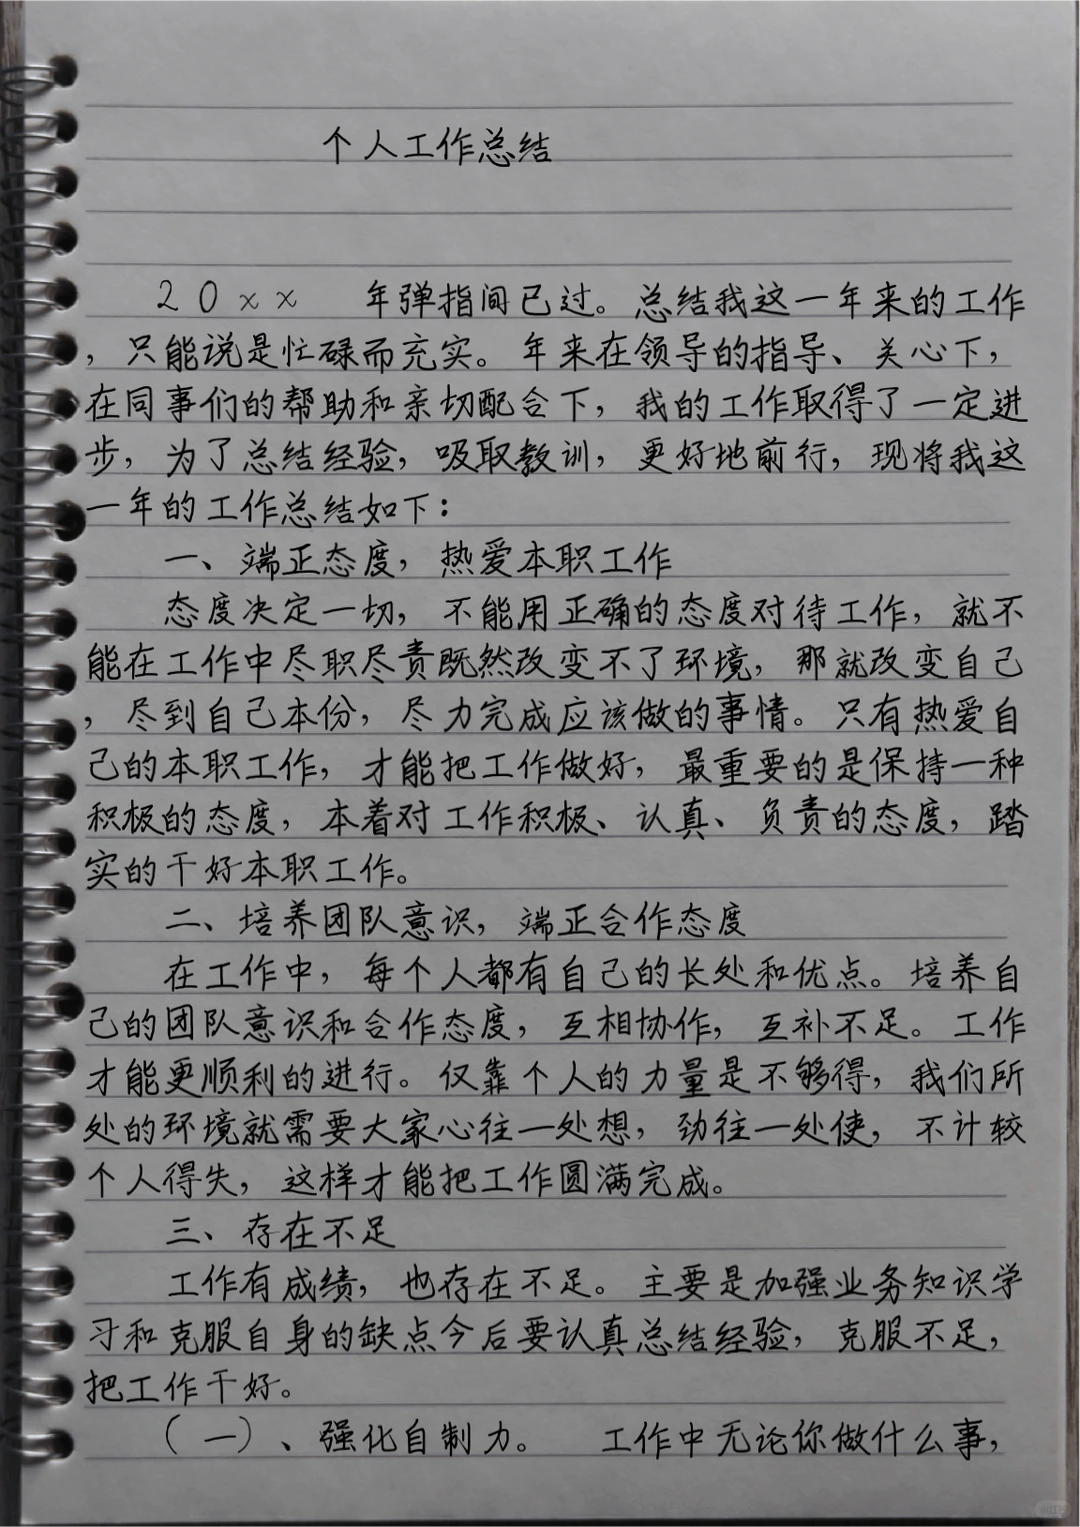 个人工作总结
20xx 年弹指间已过。总结我这一年来的工作
，只能说是忙碌而充实。年来在领导的指导、关心下，
在同事们的帮助和亲切配合下，我的工作取得了一定进
步，为了总结经验，吸取教训，更好地前行，现将我这
一年的工作总结如下：
一、端正态度，热爱本职工作
态度决定一切，不能用正确的态度对待工作，就不
能在工作中尽职尽责既然改变不了环境，那就改变自己
，尽到自己本份，尽力完成应该做的事情。只有热爱自
己的本职工作，才能把工作做好，最重要的是保持一种
积极的态度，本着对工作积极、认真、负责的态度，踏
实的干好本职工作。
二、培养团队意识，端正合作态度
在工作中，每个人都有自己的长处和优点。培养自
己的团队意识和合作态度，互相协作，互补不足。工作
才能更顺利的进行。仅靠个人的力量是不够得，我们所
处的环境就需要大家心往一处想，劲往一处使，不计较
个人得失，这样才能把工作圆满完成。
三、存在不足
工作有成绩，也存在不足。主要是加强业务知识学
习和克服自身的缺点今后要认真总结经验，克服不足，
把工作干好。
（一）、强化自制力。 工作中无论你做什么事，